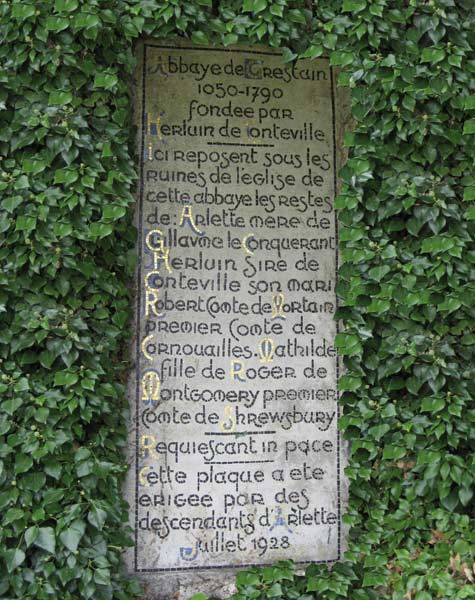 Abbaye de Grestain
1050-1790
fondee par
Herluin de Conteville
Ici reposent sous les
ruines de l'eglise de
cette abbaye les restes
de : Arlette mere de
Gllavme le Conquerant
Herluin Sire de
Conteville son mari
Robert Comte de Mortain
premier Comte de
Cornouailles. Mathilde
fille de Roger de
Montgomery premier
Comte de Shrewsbury
Requiescant in pace
Cette plaque a ete
erigee par des
descendants d'Arlette
Juillet 1928